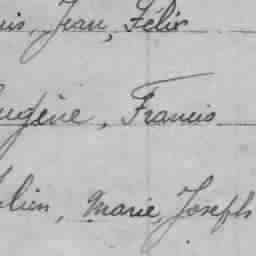 Jean, Félix
Eugène, Francis
Marie, Joseph